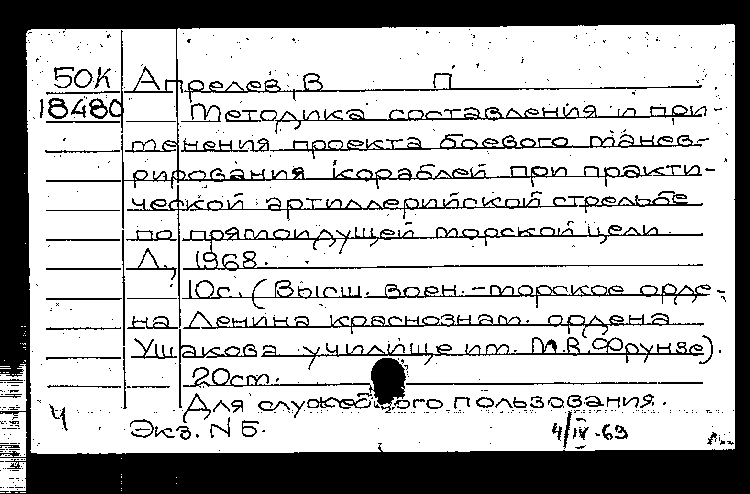 50К Апрелев, В П
18480 Методика составления и при-
менения проекта боевого манев-
рирования кораблей при практи-
ческой артиллерийской стрельбе
по прямоидущей морской цели.
Л., 1968.
10с. (Высш. воен.-морское орде-
на Ленина краснознам. ордена
Ушакова училище им. М.В.Фрунзе).
20см.
Для служебного пользования.
Ч Экз. N 5. 4/IV-69